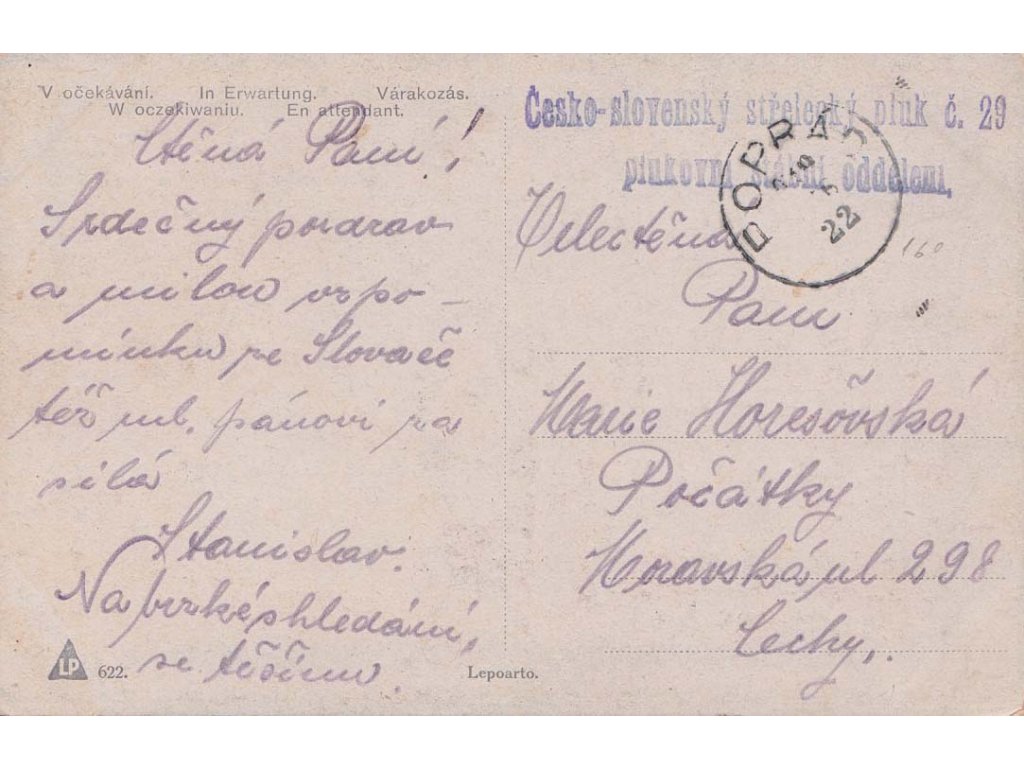 V očekávání. In Erwartung. Várakozás.
W oczekiwaniu. En attendant.
Ctěná Paní!
Srdečný pozdrav
a milou vzpo-
mínku ze Slovače
též ml. pánovi za
sílá
Stanislav.
Na brzké shledání,
se těšíme.
LP 622.
Lepoarto.
Česko-slovenský střelecký pluk č. 29
plukovní štábní oddělení,
POPRAD
22
160
Velectěná
Paní
Marie Horesovská
Počátky
Moravská ul 298
Čechy,.